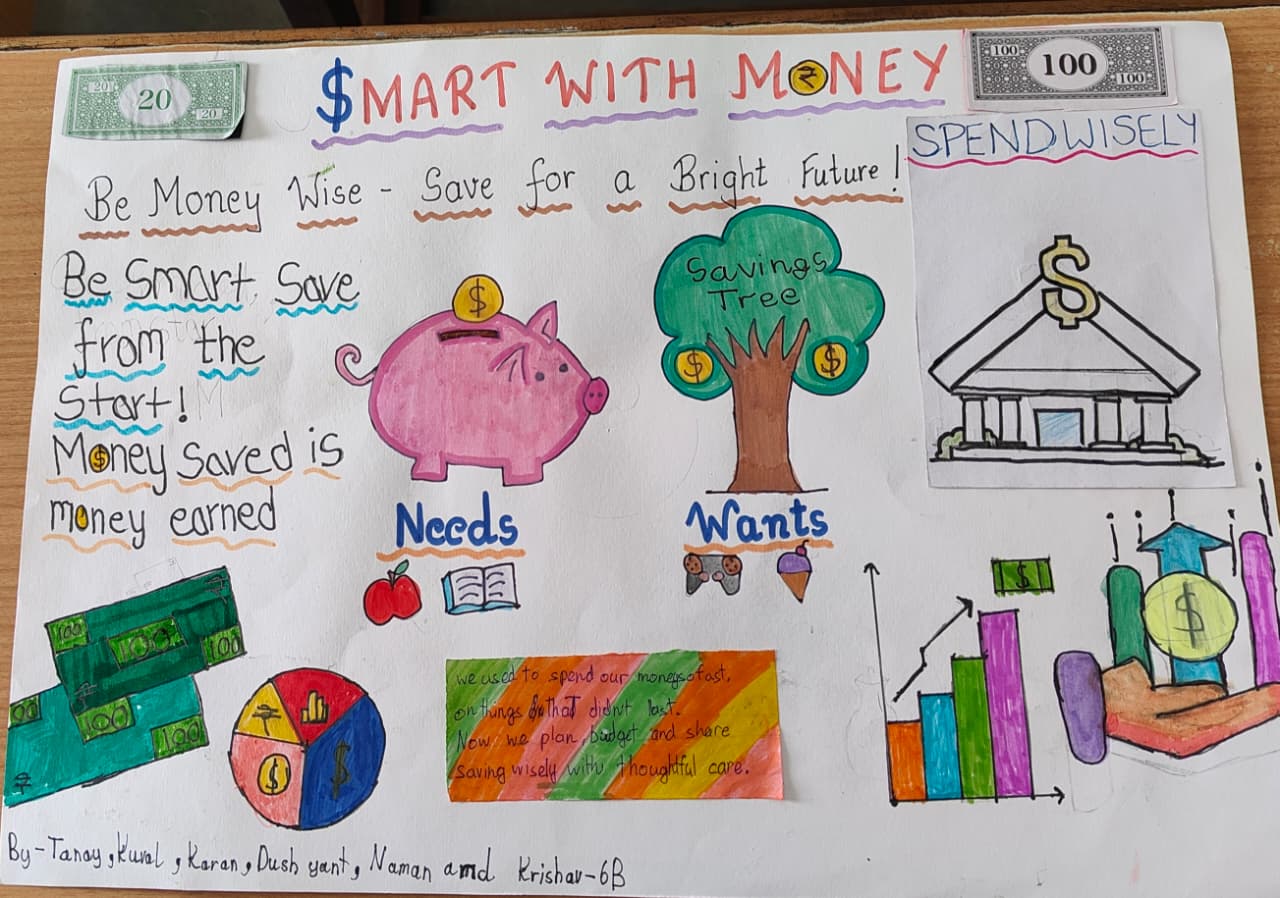 20 20 20
$MART WITH M₹NEY
100 100 100
SPEND WISELY
Be Money Wise - Save for a Bright Future!
Be Smart, Save
from the
Start!
M$ney Saved is
money earned
$
Savings
Tree
$ $
$
Needs
Wants
100 100 100
100 100 100
₹
$
$
we used to spend our money so fast,
on things that didn't last.
Now we plan, budget and share
saving wisely with thoughtful care.
$
$
By-Tanay, Kuval, Karan, Dushyant, Naman and Krishav-6B